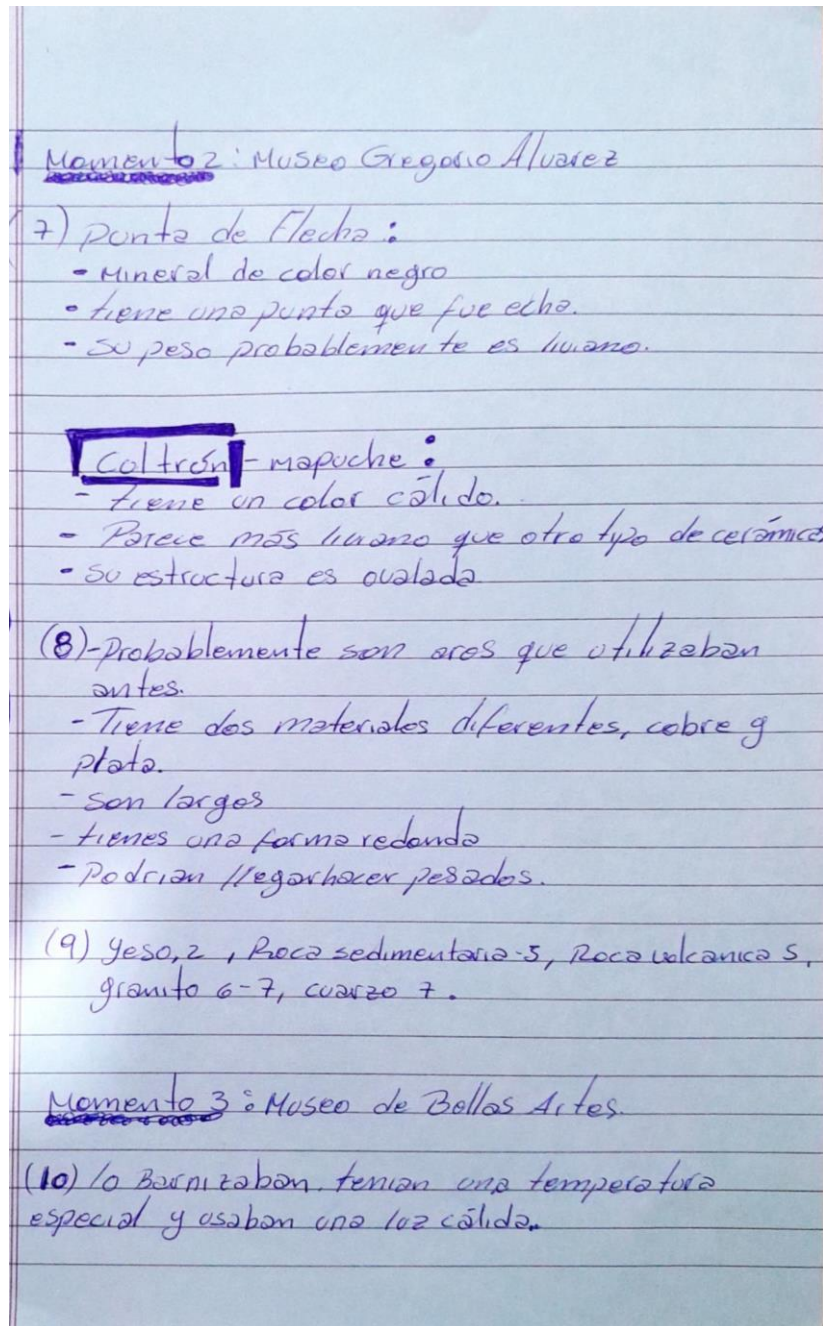 Momento 2: Museo Gregorio Alvarez
7) Punta de Flecha:
- Mineral de color negro
- tiene una punta que fue echa.
- Su peso probablemente es liviano.
Coltrón - mapuche:
- tiene un color cálido.
- Parece más liviano que otro tipo de cerámica
- Su estructura es ovalada
(8) - Probablemente son aros que utilizaban
antes.
- Tiene dos materiales diferentes, cobre y
plata.
- son largos
- tienes una forma redonda
- Podrian llegarhacer pesados.
(9) yeso, 2, Roca sedimentaria-5, Roca volcanica 5,
granito 6-7, cuarzo 7.
Momento 3: Museo de Bellas Artes.
(10) lo Barnizaban. tenian una temperatura
especial y usaban una luz cálida.